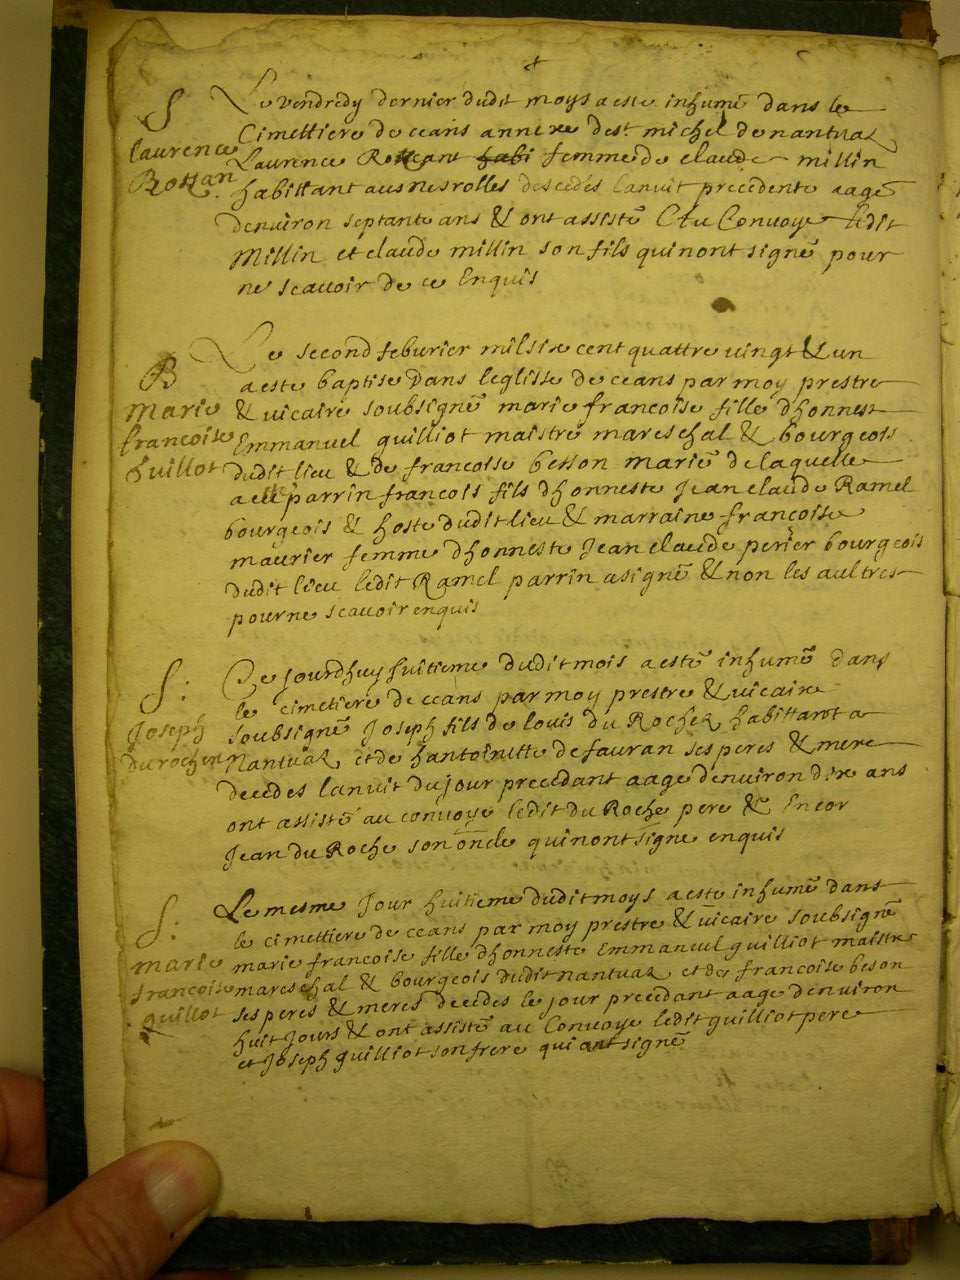 S
Laurence
Rottan
Le vendredy dernier dudit moys a este inhumé dans le
Cimettiere de ceans annexe de st michel de nantuaz
Laurence Rottant habi femme de claude millin
habittant aus nesrolles descedés la nuit precedente aagé
denuiron septante ans & ont assisté Au Conuoye ledit
Millin et claude millin son fils qui nont signé pour
ne scauoir de ce Enquis
B
Marie
francoise
Guillot
Le second feburier mil six cent quattre uingt & un
a este baptise Dans leglisse de ceans par moy prestre
& uicaire soubsigné marie francoise fille dhonnest
Emmanuel guilliot maistre mareschal & bourgeois
dudit lieu & de francoise besson mariè de laquelle
a esté parrin francois fils dhonneste Jean claude Ramel
bourgeois & hoste dudit lieu & marraine francoise
maurier femme dhonneste Jean claude perier bourgeois
dudit lieu ledit Ramel parrin a signé & non les aultres
pour ne scauoir enquis
S:
Joseph
du rocher
Ce jourdhuy huitieme dudit mois a esté inhumé dans
le cimetiere de ceans par moy prestre & uicaire
soubsigné Joseph fils de louis du Rocher habittant a
Nantuaz et de hantoinette de fauran ses peres & mere
decedes la nuit du jour precedant aage denuiron dix ans
ont assisté au conuoye ledit du Roche pere & Encor
Jean du Roche son oncle qui nont signe enquis
S:
marie
francoise
guillot
Le mesme Jour huitieme dudit moys a este inhumé dans
le cimettiere de ceans par moy prestre & uicaire soubsigné
marie francoise fille dhonneste Emmanuel guilliot maistre
mareschal & bourgeois dudit nantuaz et de francoise beson
ses peres & meres decedes le jour precedant aage denuiron
huit Jours & ont assisté au Conuoye ledit guilliot pere
et Joseph guilliot son frere qui ont signé